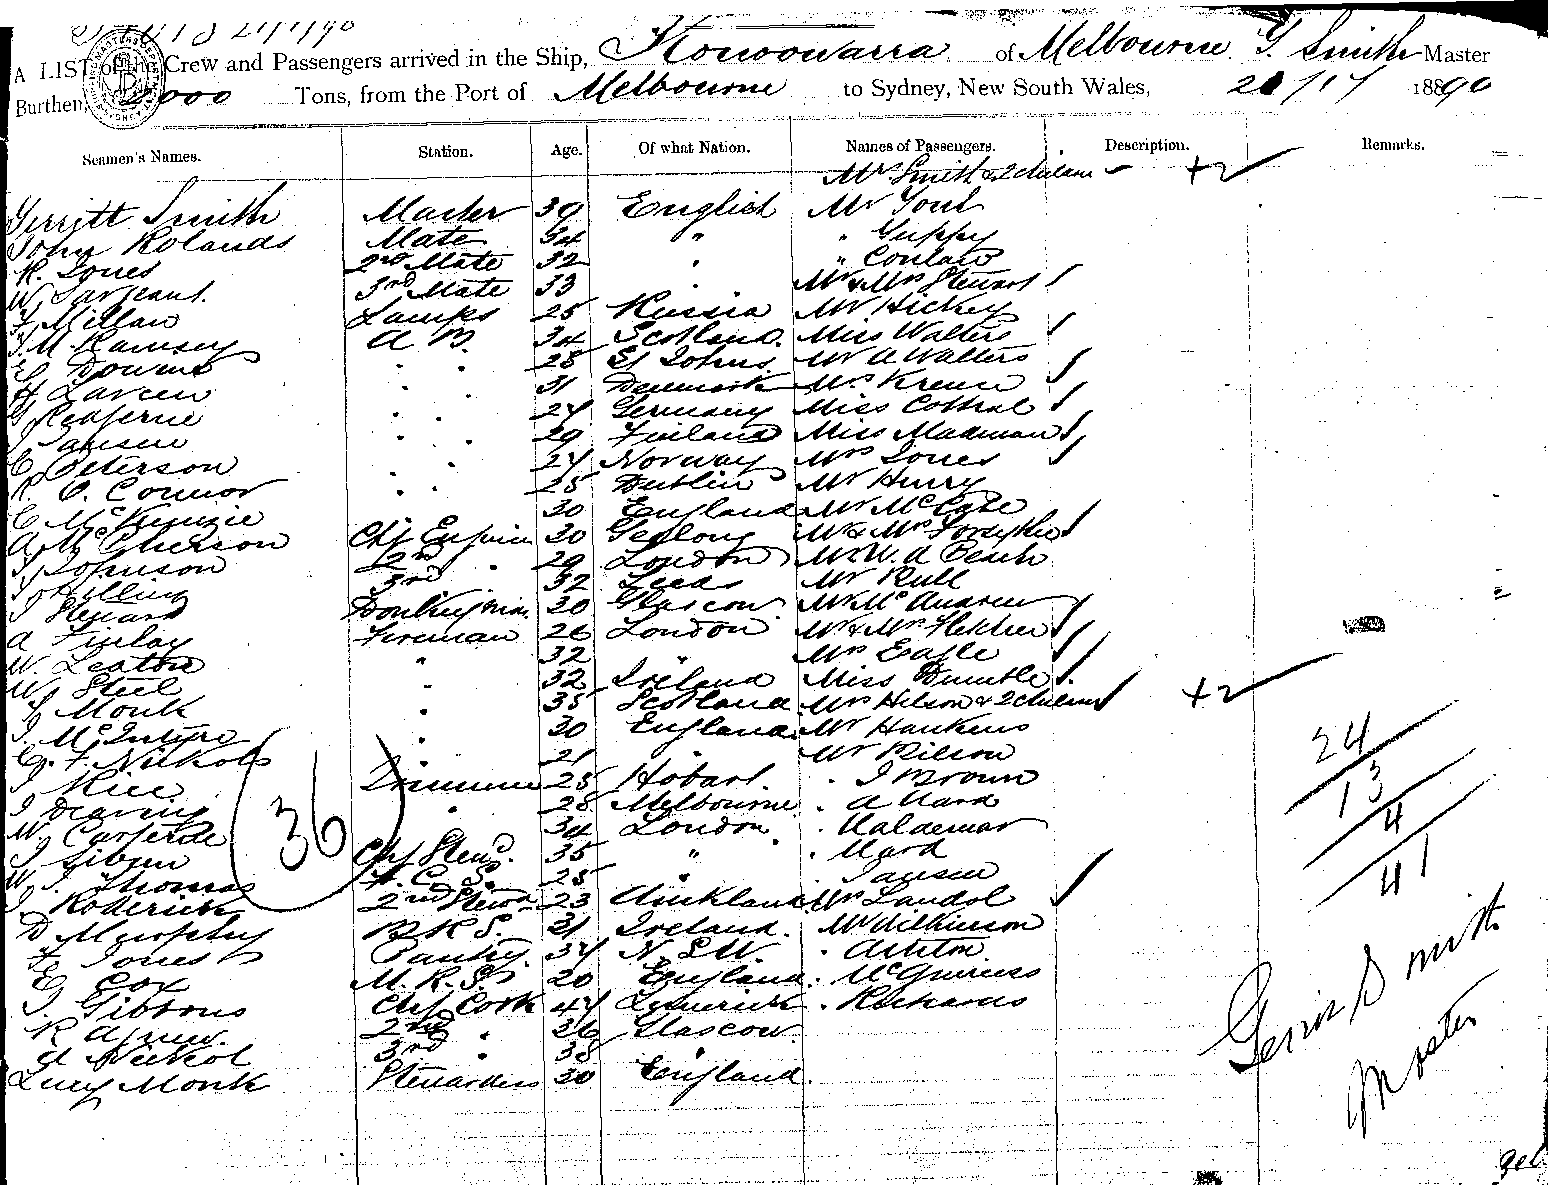 A LIST of the Crew and Passengers arrived in the Ship, Konoowarra of Melbourne G. Smith Master
Burthen, 2000 Tons, from the Port of Melbourne to Sydney, New South Wales, 1890
Seamen's Names. Station. Age. Of what Nation. Names of Passengers. Description. Remarks.
Mrs Smith & 2 children +2
Gerritt Smith Master 39 English Mr
John Rolands Mate 34 " " Guppy
R. Jones 2nd Mate 32 "
W. Sargeant. 3rd Mate 33 Mr & Mrs Stewart
Millan Lamps 25 Russia Mr Hickey
M. Ramsey A B. 34 Scotland. Miss Walters
Downs " " 28 St Johns Mr A Walters
H Larsen " " 31 Denmark Mrs
" " 27 Germany Miss Cottral
Jansen " " 29 Finland Miss Madman
C Peterson " " 27 Norway Mrs Jones
R. O. Connor " " 25 Dublin Mr Hurry
C McKenzie 30 England Mr McCabe
A McPherson Chf Engineer 30 Geelong Mr & Mrs Forsythe
Johnson 2nd " 29 London Mr W. A Beach
3rd 32 Leeds Mr Rull
J Steward Donkeyman. 30 Glascow Mr McAndrew
A Finlay Fireman 26 London Mr & Mrs Fletcher
W. Leaton " 32 " Mrs Eagle
W Steel " 32 Ireland Miss
Monk " 35 Scotland Mrs Hilson & 2 children +2
J. McIntyre " 30 England Mr Hawkins
C. F. Nickols 21 " Mr Wilson
J Rice 25 Hobart. " J Brown
J Dearing " 28 Melbourne " A Ward
W. 34 London " Waldemar
J Chf Stewd. 35 " " Ward
W. J. Thomas F. C. S. 25 " " Jansen
J. Roderick 2nd Stewd 23 Auckland Mrs Landol
D Murphy B R S. 31 Ireland. Mr Wilkinson
Jones Pantry 37 N. S. W. " Ashton
E Cox M. R. S. 20 England. " McGuiness
J. Gibbons Chf Cook 47 Limerick " Richards
R 2nd " 26 Glascow
A Nickol 3rd " 38 "
Lucy Monk Stewardess 30 England.
36
24
13
4
41
Gerrit Smith
Master